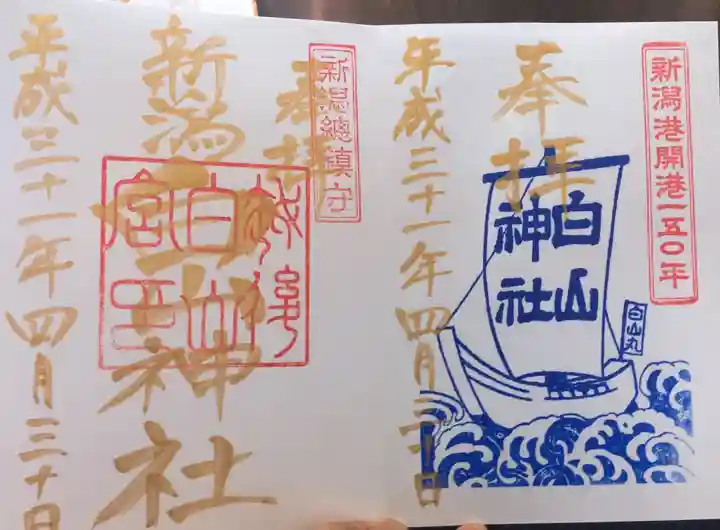 新潟港開港一五〇年
奉拝
白山
神社
白山丸
平成三十一年四月三十日
新潟總鎮守
奉拝
新潟白山神社
平成三十一年四月三十日